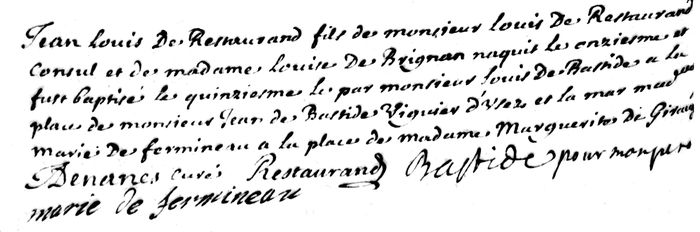 Jean louis De Restaurand fils de monsieur louis De Restaurand
Consul et de madame louise De Brignan naquit le onziesme et
fust baptisé le quinziesme le par monsieur louis De Bastide a la
place de monsieur Jean de Bastide Viguier d'Usez et la mar
marie De fermineau a la place de madame Marguerite De
curé Restaurand Bastide pour mon pere
marie de fermineau